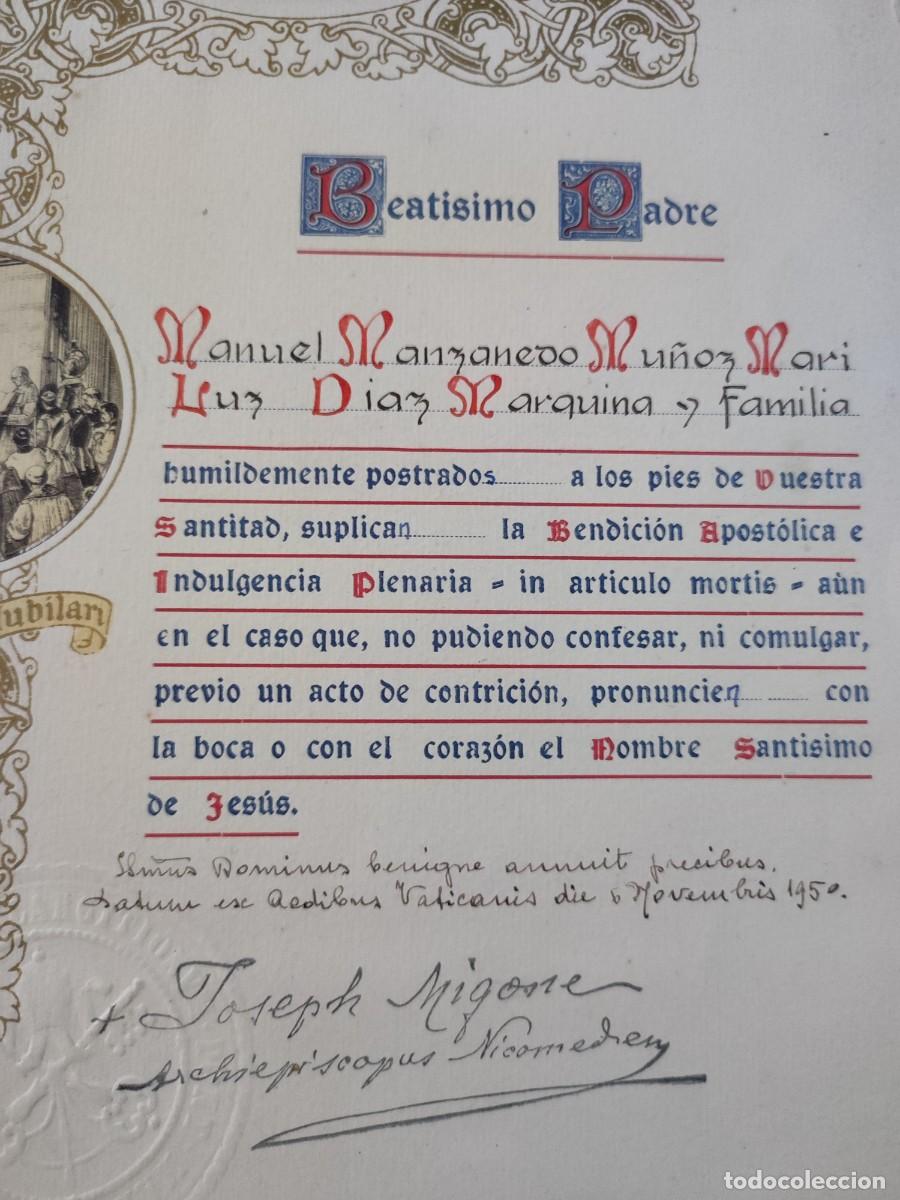 Beatisimo Padre
Manuel Manzanedo Muñoz Mari
Luz Diaz Marquina y Familia
humildemente postrados a los pies de Vuestra
Santitad, suplican la Bendición Apostólica e
Indulgencia Plenaria - in articulo mortis - aùn
en el caso que, no pudiendo confesar, ni comulgar,
previo un acto de contrición, pronuncien con
la boca o con el corazón el Nombre Santisimo
de Jesús.
ubilari
Dominus benigne annuit precibus.
Datum ex Aedibus Vaticanis die 6 Novembris 1950.
+ Joseph Migone
Archiepiscopus Nicomedien
todocoleccion